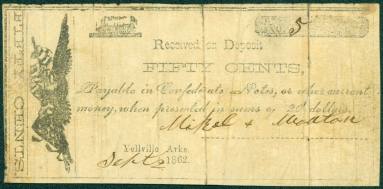 FIFTY CENTS.
No. 5
Received on Deposit
FIFTY CENTS,
Payable in Confederate Notes, or other current
money, when presented in sums of 20 dollars.
Mikel &
Yellville Arks.
Sept 1862.